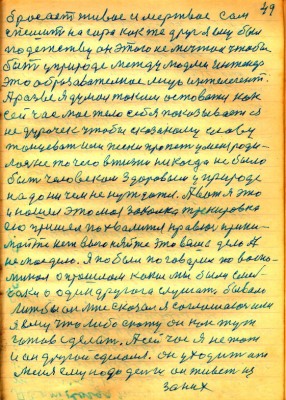 49
бросает живое и мертвое сам
спешит на гора как же друг я ему был
по детству он этого не мечтал чтобы
быть у природе между людми
это образавателное лицо интелегент.
А разве я думал таким остоватся как
сейчас мое тело себя показывает я
не дурочек чтобы сказаному слову
танцеват или песни пропет у меня роди-
лося не то чего в жизни никогда не было
быт человеком здоровым у природе
надо ничем не нуждатся. А вот я это
и нашел это моя закалка тренировка
его пришел похвалится правлюсь прини-
майте нет выгоняйте это ваше дело а
не мое дело. Я побыл поговорил по воспо-
минал о прошлом какие мы были
один другого слушат, бывало
что либо он мне сказал я соглашаюсь или
я ему что либо скажу он как тут
готов сделат. А сейчас я не тот
и он другой сделался. он уходит от
меня ему надо денги он живет из
за них